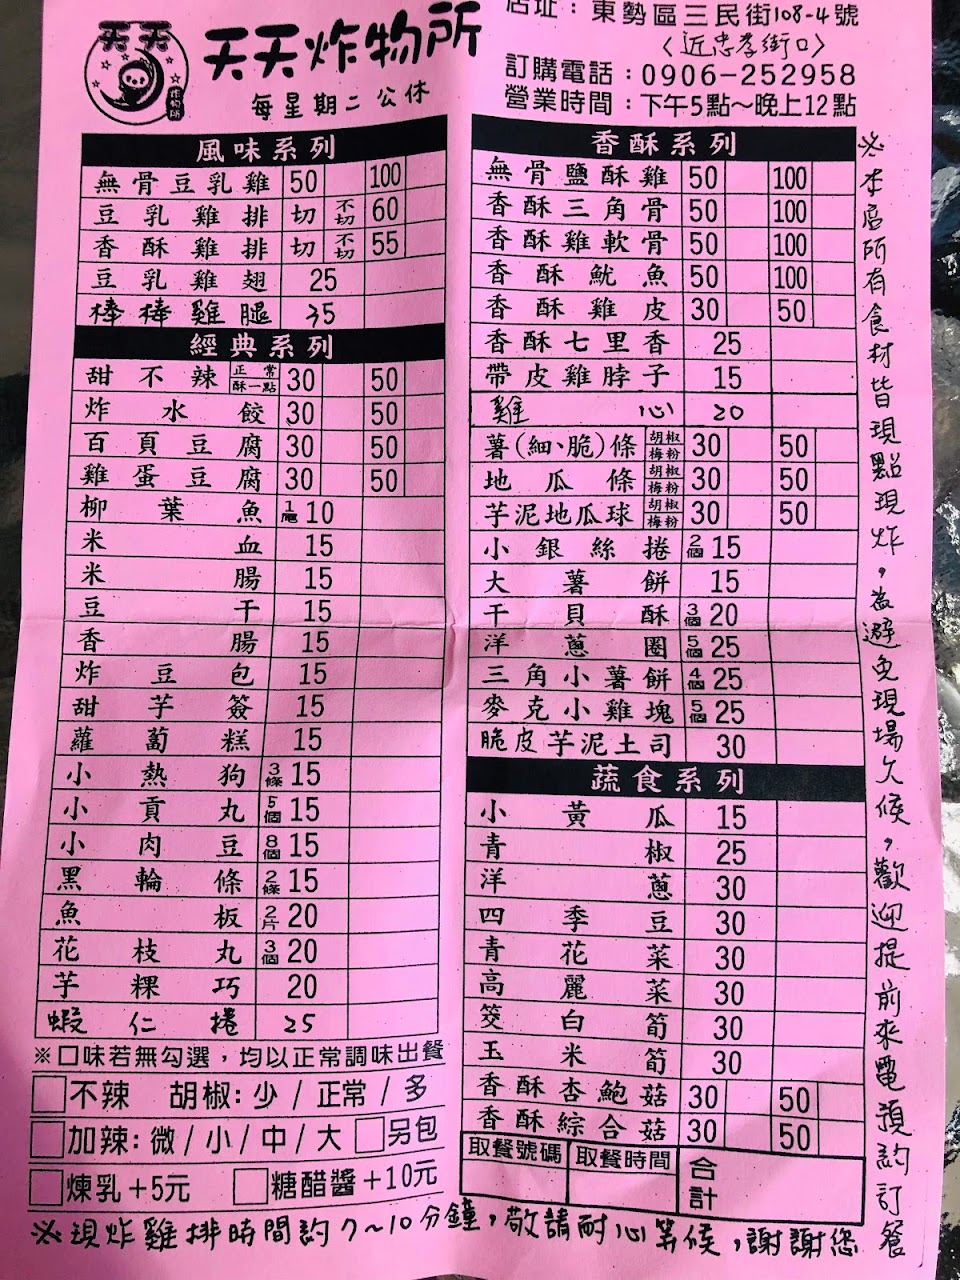 天天
炸物所
天天炸物所
每星期二公休
店址：東勢區三民街108-4號
〈近忠孝街口〉
訂購電話：0906-252958
營業時間：下午5點～晚上12點
風味系列
無骨豆乳雞 50 100
豆乳雞排 切 不切 60
香酥雞排 切 不切 55
豆乳雞翅 25
棒棒雞腿 35
經典系列
甜不辣 正常 酥一點 30 50
炸水餃 30 50
百頁豆腐 30 50
雞蛋豆腐 30 50
柳葉魚 1尾 10
米血 15
米腸 15
豆干 15
香腸 15
炸豆包 15
甜芋簽 15
蘿蔔糕 15
小熱狗 3條 15
小貢丸 5個 15
小肉豆 8個 15
黑輪條 2條 15
魚板 2片 20
花枝丸 3個 20
芋粿巧 20
蝦仁捲 25
※口味若無勾選，均以正常調味出餐
不辣 胡椒：少/正常/多
加辣：微/小/中/大 另包
煉乳+5元 糖醋醬+10元
香酥系列
無骨鹽酥雞 50 100
香酥三角骨 50 100
香酥雞軟骨 50 100
香酥魷魚 50 100
香酥雞皮 30 50
香酥七里香 25
帶皮雞脖子 15
雞心 20
薯(細、脆)條 胡椒 梅粉 30 50
地瓜條 胡椒 梅粉 30 50
芋泥地瓜球 胡椒 梅粉 30 50
小銀絲捲 2個 15
大薯餅 15
干貝酥 3個 20
洋蔥圈 5個 25
三角小薯餅 4個 25
麥克小雞塊 5個 25
脆皮芋泥土司 30
蔬食系列
小黃瓜 15
青椒 25
洋蔥 30
四季豆 30
青花菜 30
高麗菜 30
筊白筍 30
玉米筍 30
香酥杏鮑菇 30 50
香酥綜合菇 30 50
取餐號碼 取餐時間 合計
※本店所有食材皆現點現炸，為避免現場久候，歡迎提前來電預約訂餐
※現炸雞排時間約7～10分鐘，敬請耐心等候，謝謝您